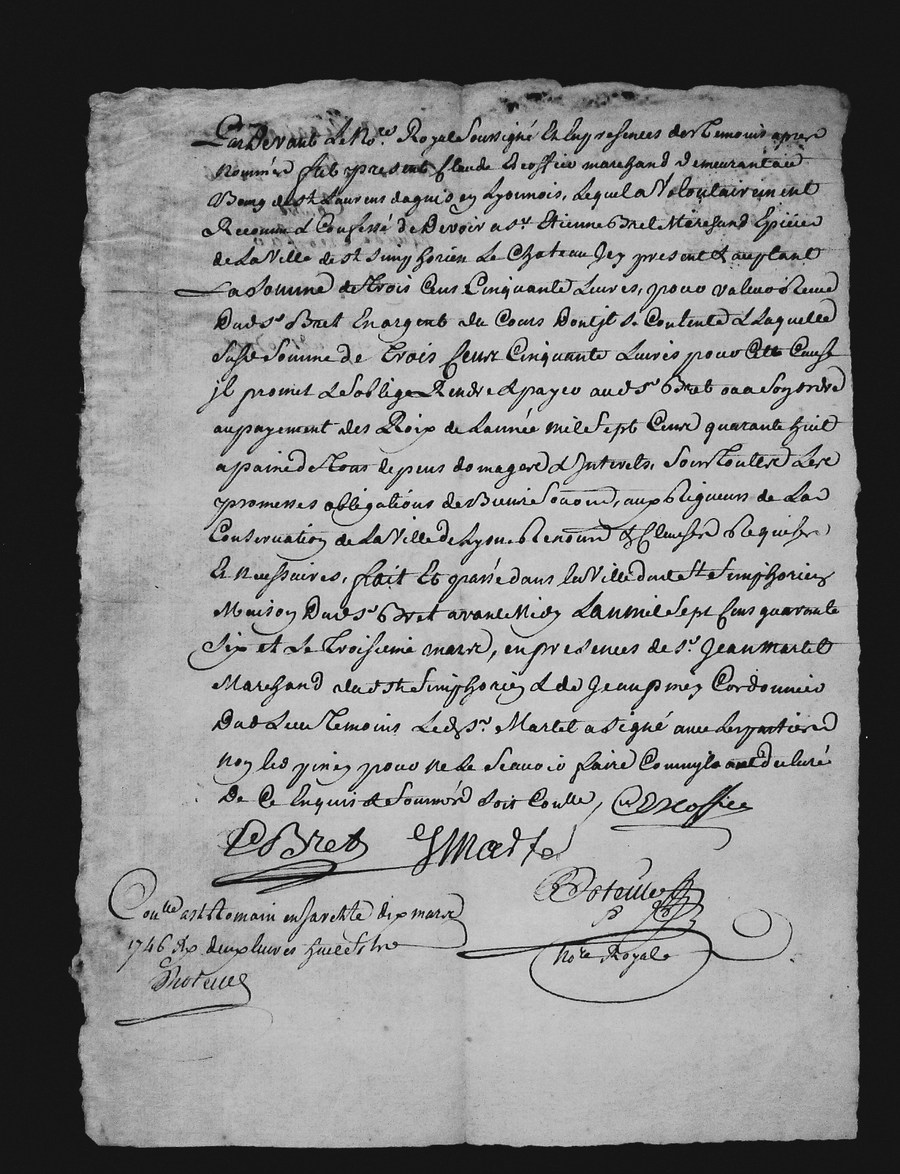 Par Devant Le No.re Royal Soussigné Et En presences des Temoins apres
nommés fut present Claude Decoffice marchand Demeurant au
Bourg de St Laurens dagnis en Lyonnois, Lequel a Volontairement
Reconnu & Confessé de Devoir a Sr. Etienne Bret Marchand Epicier
de La Ville de St Simphorien Le Chateau Jcy present & acceptant
La Somme de Trois Cens Cinquante Livres, pour valeur Receue
Dud Sr Bret En argent du Cours Dont Jl Se Contente & Laquelle
Susd Somme de Trois Cens Cinquante Livres pour Cette Cause
jl promet & Soblige Rendre & payer aud Sr Bret ou a Son ordre
au payement des Roix de Lannée Mil Sept Cens quarante huit
a paine de Tous depens domages & Jnterets, Sous Toutes Les
promesses obligations de Biens Soûmis, aux Rigueurs de La
Conservation de La Ville de Lyon Renonc & Clauses Requises
Et Necessaires, fait Et passé dans la Ville dud St Simphorien
Maison Dud Sr Bret avant Midy Lan mil Sept Cens quarante
Six et Le Troisieme mars, en presences de Sr. Jean Martel
Marchand dud St Simphorien & de Jean piney Cordonnier
Dud Lieu Temoins Led Sr. Martel a Signé avec Les parties
non led piney pour ne Le Scavoir faire Comme Il a Declaré
De Ce Enquis & Sommés Soit Coulle, C Decoffice
Le Bret J Martel
Not.re Royal
Coulle a St Romain en Jarest le dix mars
1746 Rx deux livres huit s